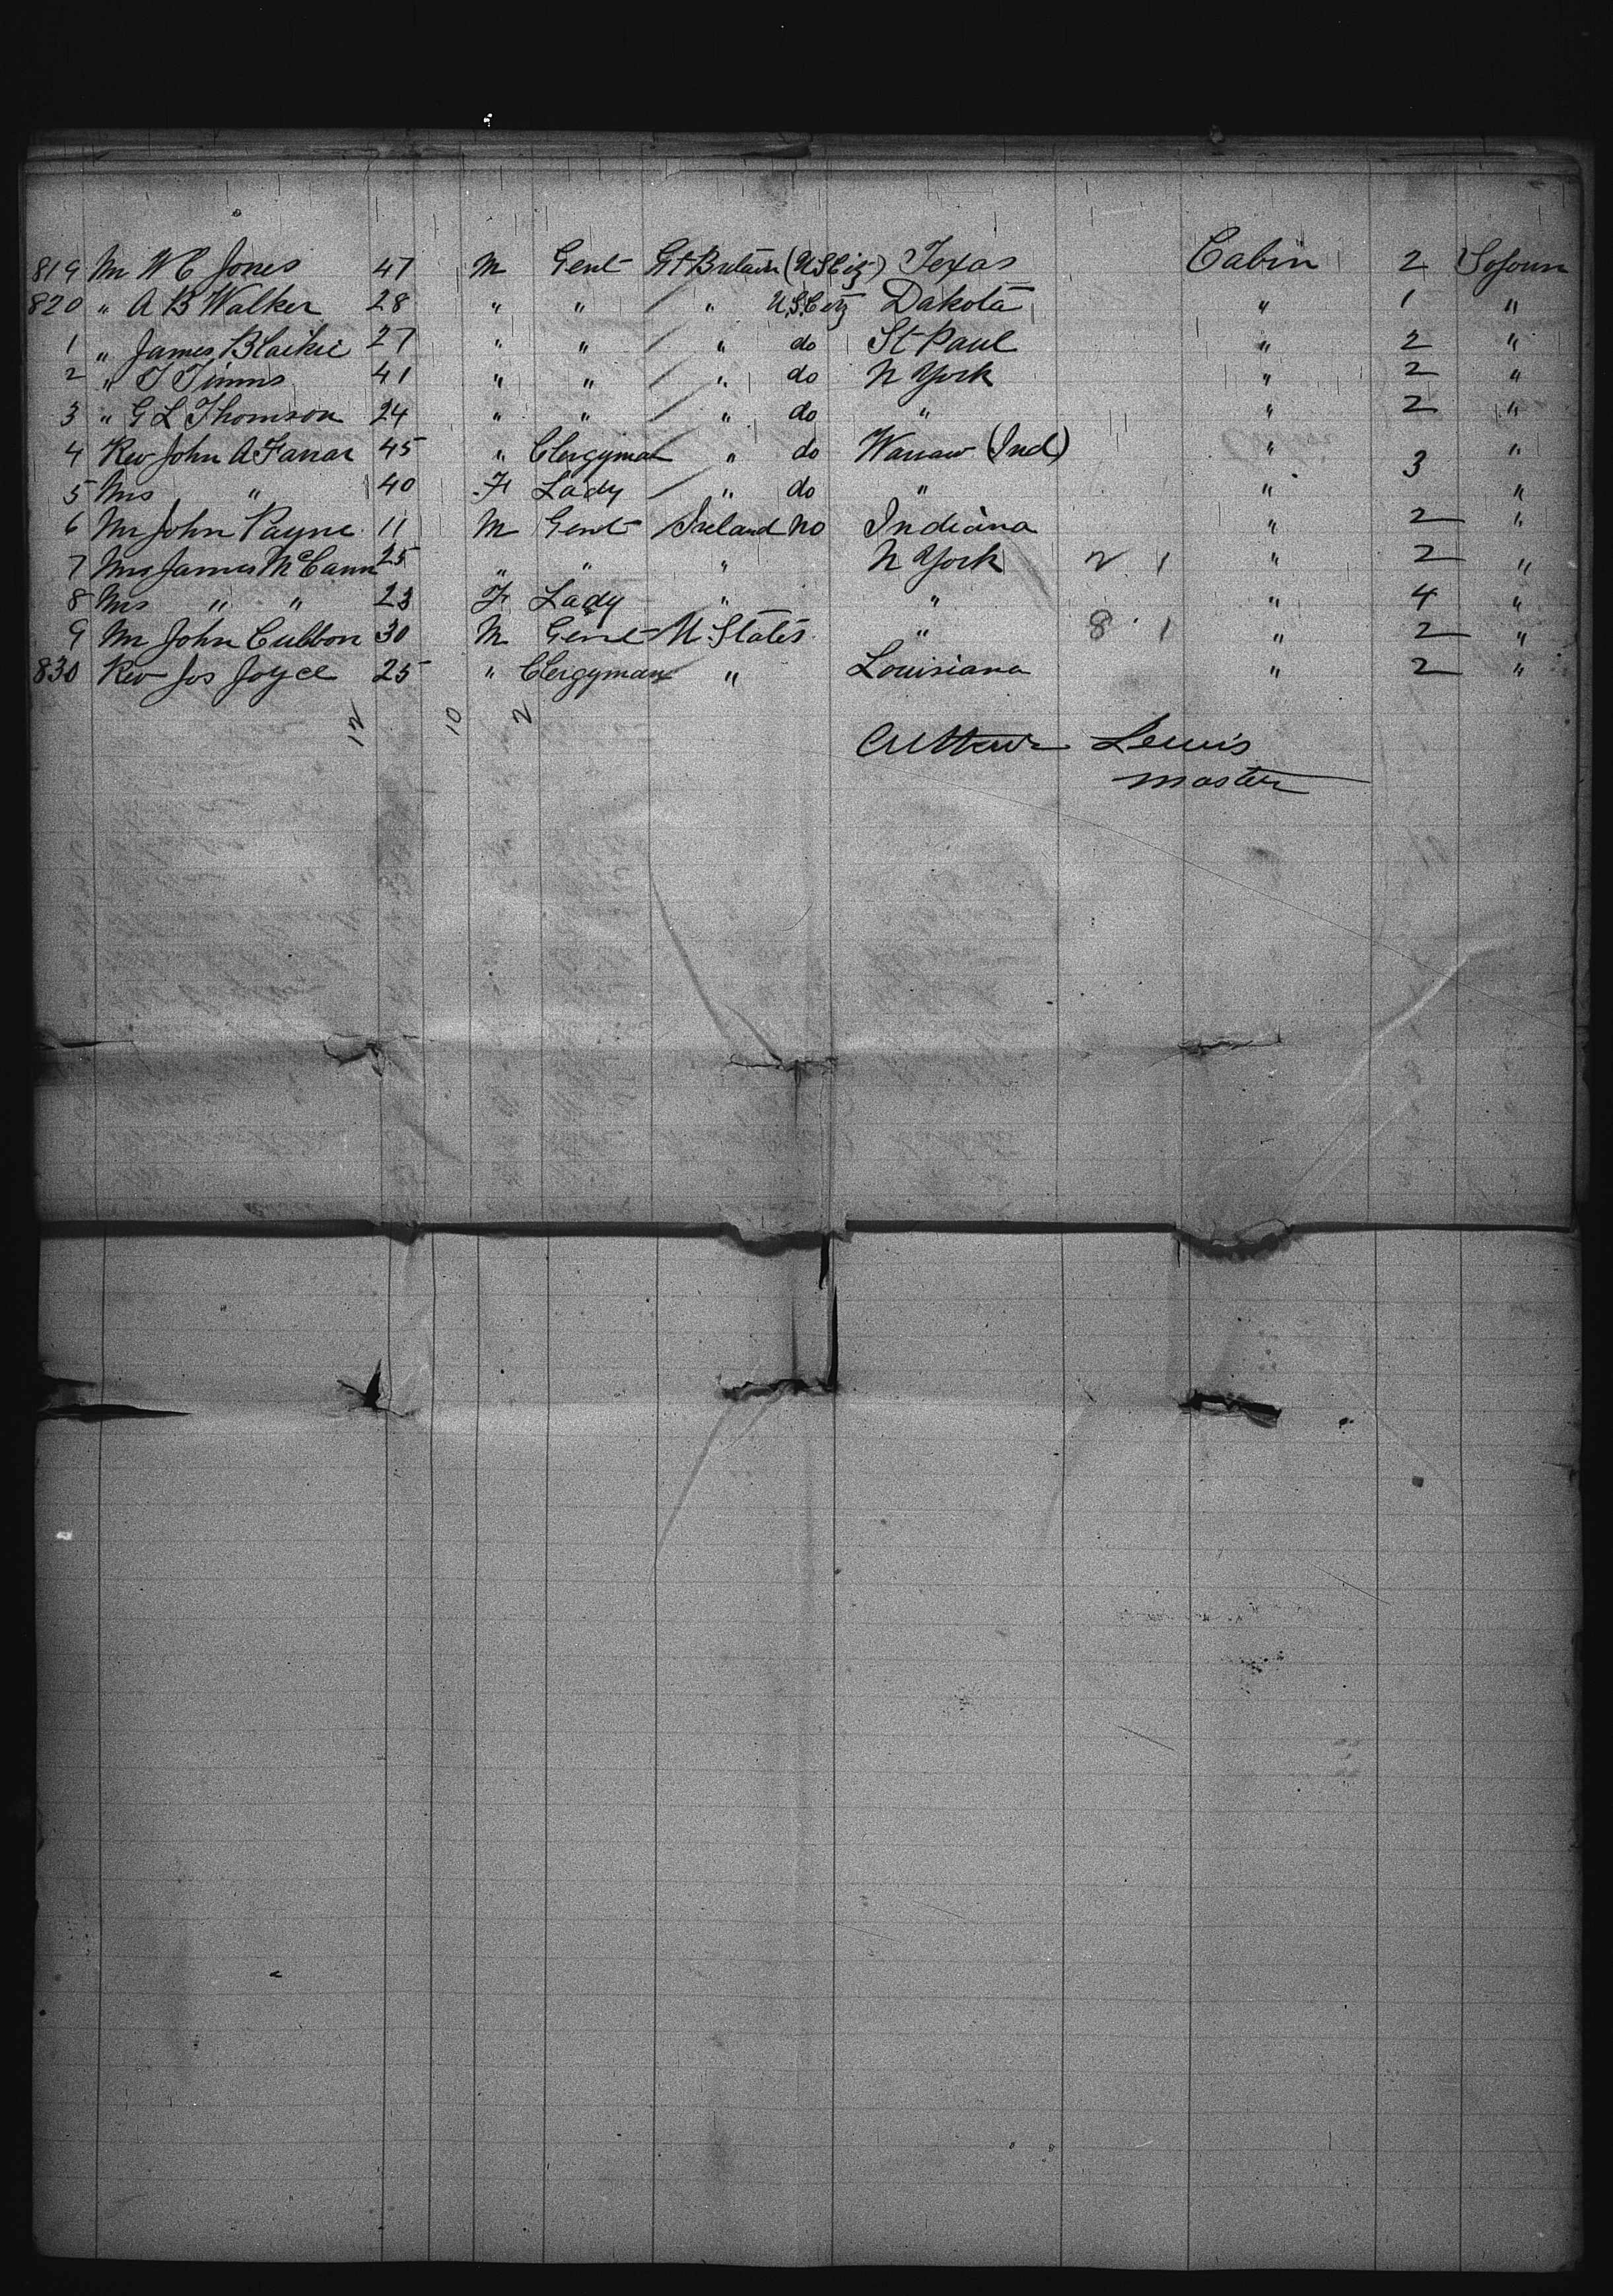 819 Mr W C Jones 47 M Gent Gt Britain (U S Citz) Texas Cabin 2 Sojourn
820 " A B Walker 28 " " " U.S. Citz Dakota " 1 "
1 " James Blaikie 27 " " " do St Paul " 2 "
2 " T Timms 41 " " " do N York " 2 "
3 " G L Thomson 24 " " " do " " 2 "
4 Rev John A Farrar 45 " Clergyman " do Warsaw (Ind) " "
5 Mrs " 40 F Lady " do " " 3 "
6 Mr John Payne 11 M Gent Ireland no Indiana " 2 "
7 Mr James McCann 25 " " " N York 2 1 " 2 "
8 Mrs " " 23 F Lady " " " 4 "
9 Mr John Cubbon 30 M Gent U. States " 8 1 " 2 "
830 Rev Jos Joyce 25 " Clergyman " Louisiana " 2 "
12 10 2
Arthur Lewis
master